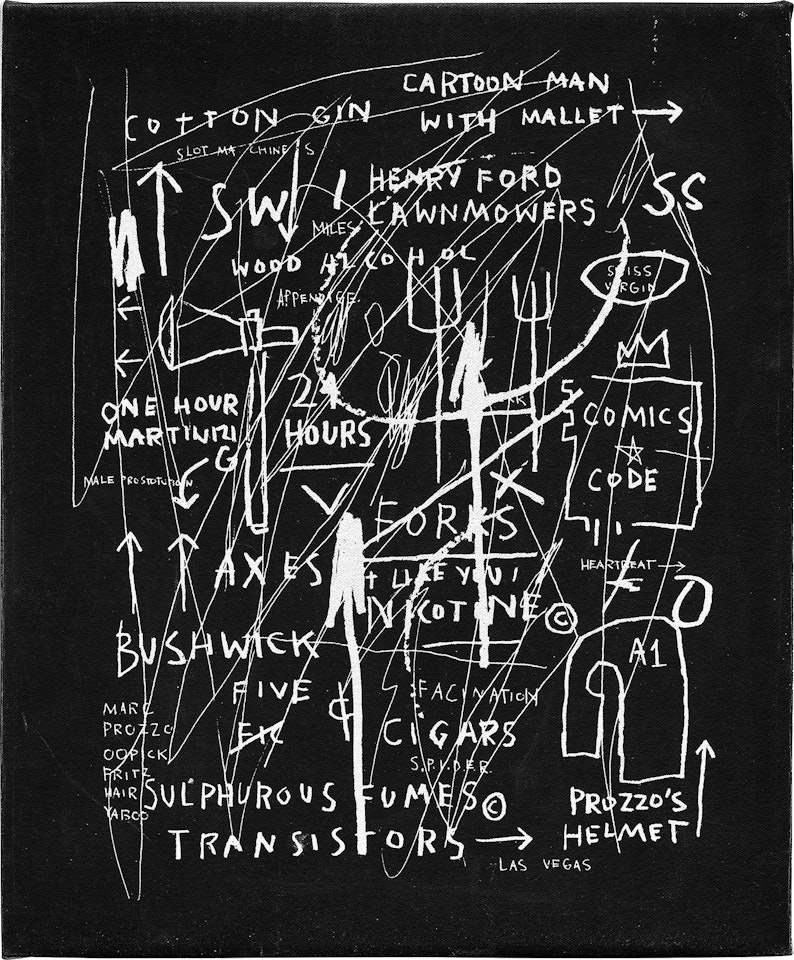 CARTOON MAN
WITH MALLET →
COTTON GIN
SLOT MACHINES
SW
HENRY FORD
LAWNMOWERS
SS
MILES
WOOD ALCOHOL
APPENDIGE.
SWISS
VIRGIN
24
HOURS
ONE HOUR
MARTINIZI
G
MALE PROSTOTUTION
5
COMICS
CODE
X
FORKS
AXES
I LIKE YOU!
NICOTINE ©
HEARTBEAT →
BUSHWICK
A1
FIVE
EIC
&
FACINATION
CIGARS
S.P.I.DER.
MARC
PROZZO
OOPICK
FRITZ
HAIR
YABOO
SULPHUROUS FUMES ©
TRANSISTORS →
LAS VEGAS
PROZZO'S
HELMET